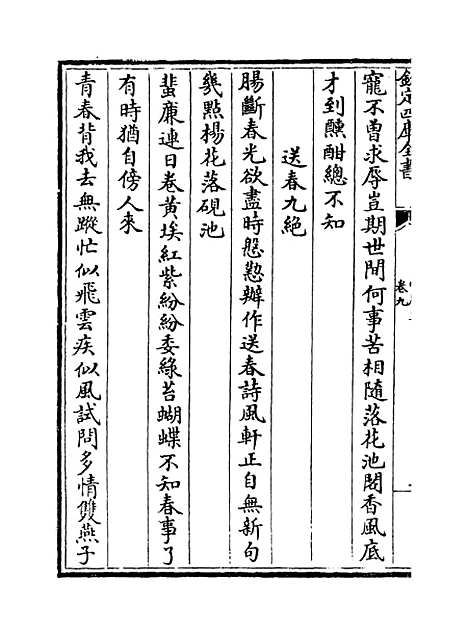 欽定四庫全書
卷九
寵不曾求辱豈期世間何事苦相隨落花池閣香風底
才到醺酣總不知
送春九絶
腸斷春光欲盡時慇懃辦作送春詩風軒正自無新句
幾點楊花落硯池
蜚廉連日卷黄埃紅紫紛紛委綠苔蝴蝶不知春事了
有時猶自傍人來
青春背我去無蹤忙似飛雲疾似風試問多情雙燕子